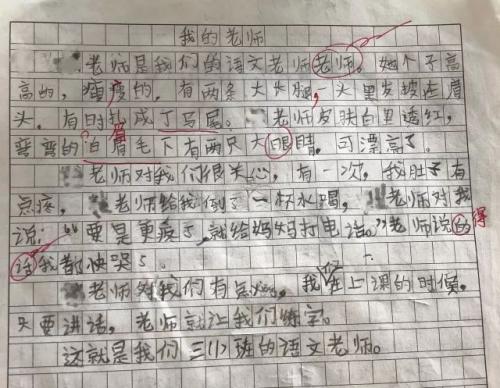 我的老师
老师是我们的语文老师老师。她个子高
高的，瘦瘦的，有两条大长腿，一头黑发披在肩
头，有时扎成丁马尾。老师皮肤白里透红，
弯弯的白眉毛下有两只大眼睛，可漂亮了。
眉
老师对我们很关心，有一次，我肚子有
点疼，老师给我倒了一杯水喝，老师对我
说：“要是更疼了，就给妈妈打电话。”老师说的
得
话我都快哭了。
老师对我们有点，我在上课的时候，
只要讲话，老师就让我们练字。
这就是我们三(1)班的语文老师。